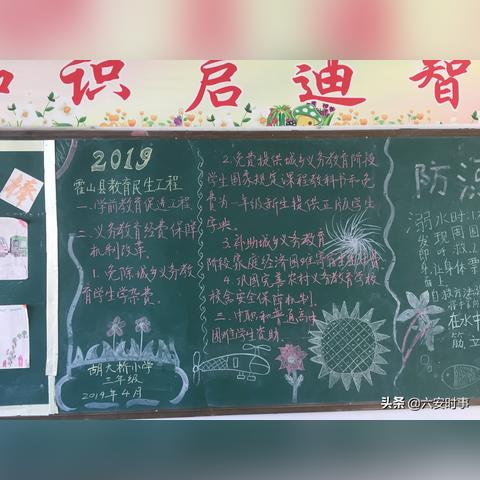 识启迪智
2019
霍山县教育民生工程
一.学前教育促进工程
二.义务教育经费保障
机制改革.
1.免除城乡义务教
育学生学杂费.
胡大桥小学
三年级
2019年4月
2.免费提供城乡义务教育阶段
学生国家规定课程教科书和免
费为一年级新生提供正版学生
字典.
3.补助城乡义务教育
阶段家庭经济困难寄宿生生活费.
4.巩固完善农村义务教育学校
校舍安全保障机制.
三.中职和普通高中
困难学生资助
防
溺水时:1.
发现周围
时,救
在水中
筋立
头条 @六安时事